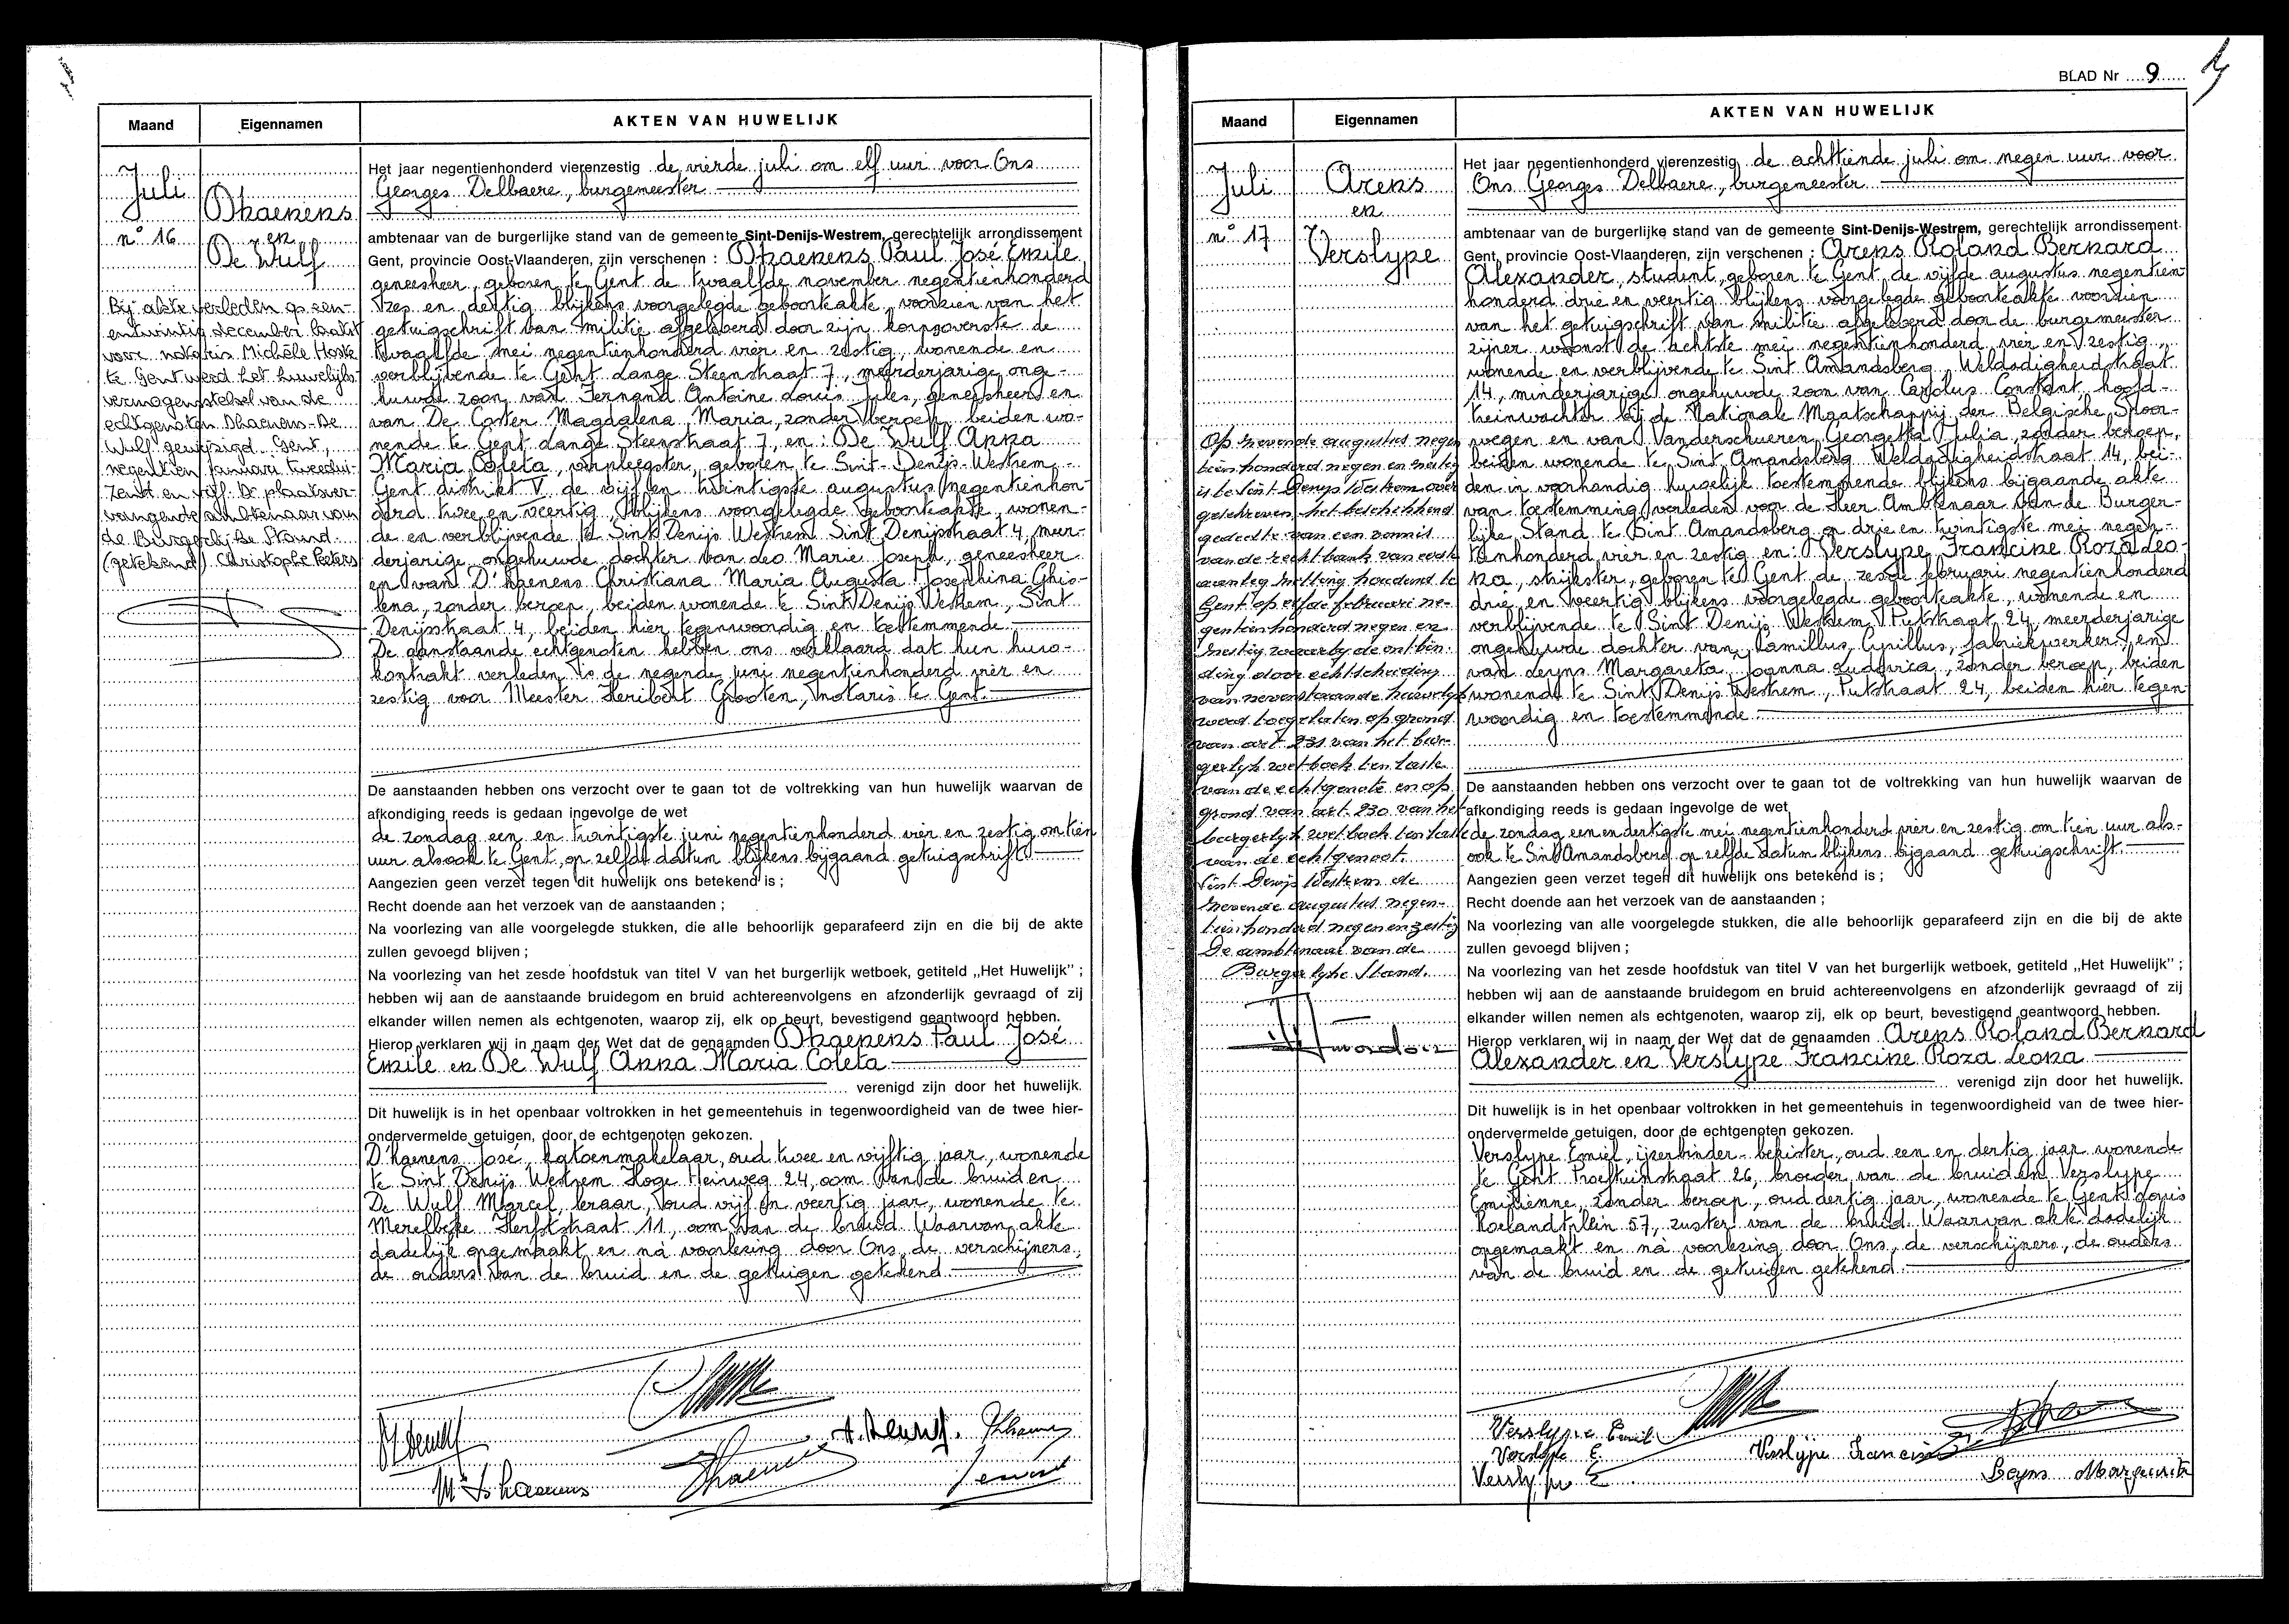 Maand
Eigennamen
AKTEN VAN HUWELIJK
Juli
Dhaenens
nº 16
en
De Wulf
Bij akte verleden op een-
entwintig december laatst
voor notaris Michèle Hoste
te Gent werd het huwelijks-
vermogensstelsel van de
echtgenoten Dhaenens-De
Wulf gewijzigd. Gent,
negentien januari tweedui-
zend en vijf. De plaatsver-
vangende ambtenaar van
de Burgerlijke Stand.
(getekend) Christophe Peeters
Het jaar negentienhonderd vierenzestig de vierde juli om elf uur voor Ons
Georges Delbaere, burgemeester
ambtenaar van de burgerlijke stand van de gemeente Sint-Denijs-Westrem, gerechtelijk arrondissement
Gent, provincie Oost-Vlaanderen, zijn verschenen : Dhaenens Paul José Emile
geneesheer, geboren te Gent de twaalfde november negentienhonderd
zes en dertig blijkens voorgelegde geboorteakte, voorzien van het
getuigschrift van militie afgeleverd door zijn korpsoverste de
twaalfde mei negentienhonderd vier en zestig, wonende en
verblijvende te Gent Lange Steenstraat 7, meerderjarige onge-
huwde zoon van Fernand Antoine Louis Jules, geneesheer en
van De Coster Magdalena Maria, zonder beroep, beiden wo-
nende te Gent Lange Steenstraat 7, en : De Wulf Anna
Maria Coleta, verpleegster, geboren te Sint-Denijs-Westrem,
Gent distrikt V de vijf en twintigste augustus negentienhon-
derd twee en veertig, blijkens voorgelegde geboorteakte, wonen-
de en verblijvende te Sint Denijs Westrem Sint Denijsstraat 4, meer-
derjarige ongehuwde dochter van Leo Marie Joseph, geneesheer
en van D'haenens Christiana Maria Augusta Josephina Ghis-
lena, zonder beroep, beiden wonende te Sint Denijs Westrem, Sint
Denijsstraat 4, beiden hier tegenwoordig en toestemmende.
De aanstaande echtgenoten hebben ons verklaard dat hun huw-
kontrakt verleden is de negende juni negentienhonderd vier en
zestig voor Meester Heribert Grooten, notaris te Gent.
De aanstaanden hebben ons verzocht over te gaan tot de voltrekking van hun huwelijk waarvan de
afkondiging reeds is gedaan ingevolge de wet
de zondag een en twintigste juni negentienhonderd vier en zestig om tien
uur alsook te Gent, op zelfde datum blijkens bijgaand getuigschrift
Aangezien geen verzet tegen dit huwelijk ons betekend is ;
Recht doende aan het verzoek van de aanstaanden ;
Na voorlezing van alle voorgelegde stukken, die alle behoorlijk geparafeerd zijn en die bij de akte
zullen gevoegd blijven ;
Na voorlezing van het zesde hoofdstuk van titel V van het burgerlijk wetboek, getiteld „Het Huwelijk" ;
hebben wij aan de aanstaande bruidegom en bruid achtereenvolgens en afzonderlijk gevraagd of zij
elkander willen nemen als echtgenoten, waarop zij, elk op beurt, bevestigend geantwoord hebben.
Hierop verklaren wij in naam der Wet dat de genaamden Dhaenens Paul José
Emile en De Wulf Anna Maria Coleta
verenigd zijn door het huwelijk.
Dit huwelijk is in het openbaar voltrokken in het gemeentehuis in tegenwoordigheid van de twee hier-
ondervermelde getuigen, door de echtgenoten gekozen.
D'haenens José, katoenmakelaar, oud twee en vijftig jaar, wonende
te Sint Denijs Westrem Hoge Heirweg 24, oom van de bruid en
De Wulf Marcel, leraar, oud vijf en veertig jaar, wonende te
Merelbeke Herfststraat 11, oom van de bruid. Waarvan akte
dadelijk opgemaakt en na voorlezing door Ons, de verschijners,
de ouders van de bruid en de getuigen getekend.
A. Dewulf.
BLAD Nr 9
Maand
Eigennamen
AKTEN VAN HUWELIJK
Juli
Arens
en
nº 17
Verslype
Op zevende augustus negen
tien honderd negen en zestig
is te Sint-Denijs Westrem over
geschreven het beschikkend
gedeelte van een vonnis
van de rechtbank van eerste
aanleg zitting houdend te
Gent op elfde februari ne-
gentien honderd negen en
zestig waarbij de ontbin-
ding door echtscheiding
van nevenstaande huwelijk
werd toegelaten op grond
van art. 231 van het bur-
gerlijk wetboek ten laste
van de echtgenote en op
grond van art. 230 van het
burgerlijk wetboek ten laste
van de echtgenoot.
Sint Denijs Westrem de
zevende augustus negen-
tien honderd negen en zestig
De ambtenaar van de
Burgerlijke Stand.
Het jaar negentienhonderd vierenzestig de achttiende juli om negen uur voor
Ons Georges Delbaere, burgemeester
ambtenaar van de burgerlijke stand van de gemeente Sint-Denijs-Westrem, gerechtelijk arrondissement
Gent, provincie Oost-Vlaanderen, zijn verschenen : Arens Roland Bernard
Alexander, student, geboren te Gent de vijfde augustus negentien
honderd drie en veertig blijkens voorgelegde geboorteakte voorzien
van het getuigschrift van militie afgeleverd door de burgemeester
zijner woonst de achtste mei negentienhonderd vier en zestig,
wonende en verblijvende te Sint Amandsberg, Weldadigheidstraat
14, minderjarige ongehuwde zoon van Carolus Constant hoofd-
treinwachter bij de Nationale Maatschappij der Belgische Spoor-
wegen en van Vanderschueren Georgette Julia, zonder beroep,
beiden wonende te Sint Amandsberg Weldadigheidstraat 14, bei-
den in voorhandig huwelijk toestemmende blijkens bijgaande akte
van toestemming verleden voor de Heer Ambtenaar van de Burger-
lijke Stand te Sint Amandsberg op drie en twintigste mei negen-
tienhonderd vier en zestig en: Verslype Francine Roza Leo-
na, strijkster, geboren te Gent de zesde februari negentienhonderd
drie en veertig blijkens voorgelegde geboorteakte, wonende en
verblijvende te Sint Denijs Westrem Putstraat 24, meerderjarige
ongehuwde dochter van Camillus Cyrillus, fabriekwerker, en
van Leyns Margareta Joanna Ludovica, zonder beroep, beiden
wonende te Sint Denijs Westrem, Putstraat 24, beiden hier tegen-
woordig en toestemmende.
De aanstaanden hebben ons verzocht over te gaan tot de voltrekking van hun huwelijk waarvan de
afkondiging reeds is gedaan ingevolge de wet
de zondag een en dertigste mei negentienhonderd vier en zestig om tien uur als-
ook te Sint Amandsberg op zelfde datum blijkens bijgaand getuigschrift.
Aangezien geen verzet tegen dit huwelijk ons betekend is ;
Recht doende aan het verzoek van de aanstaanden ;
Na voorlezing van alle voorgelegde stukken, die alle behoorlijk geparafeerd zijn en die bij de akte
zullen gevoegd blijven ;
Na voorlezing van het zesde hoofdstuk van titel V van het burgerlijk wetboek, getiteld „Het Huwelijk" ;
hebben wij aan de aanstaande bruidegom en bruid achtereenvolgens en afzonderlijk gevraagd of zij
elkander willen nemen als echtgenoten, waarop zij, elk op beurt, bevestigend geantwoord hebben.
Hierop verklaren wij in naam der Wet dat de genaamden Arens Roland Bernard
Alexander en Verslype Francine Roza Leona
verenigd zijn door het huwelijk.
Dit huwelijk is in het openbaar voltrokken in het gemeentehuis in tegenwoordigheid van de twee hier-
ondervermelde getuigen, door de echtgenoten gekozen.
Verslype Emiel, ijzerbinder-bekister, oud een en dertig jaar wonende
te Gent Proeftuinstraat 26, broeder van de bruid en Verslype
Emilienne, zonder beroep, oud dertig jaar, wonende te Gent Louis
Roelandtplein 57, zuster van de bruid. Waarvan akte dadelijk
opgemaakt en na voorlezing door Ons, de verschijners, de ouders
van de bruid en de getuigen getekend.
Verslype Emiel
Verslype E.
Verslype Francine
Leyns Marguerite